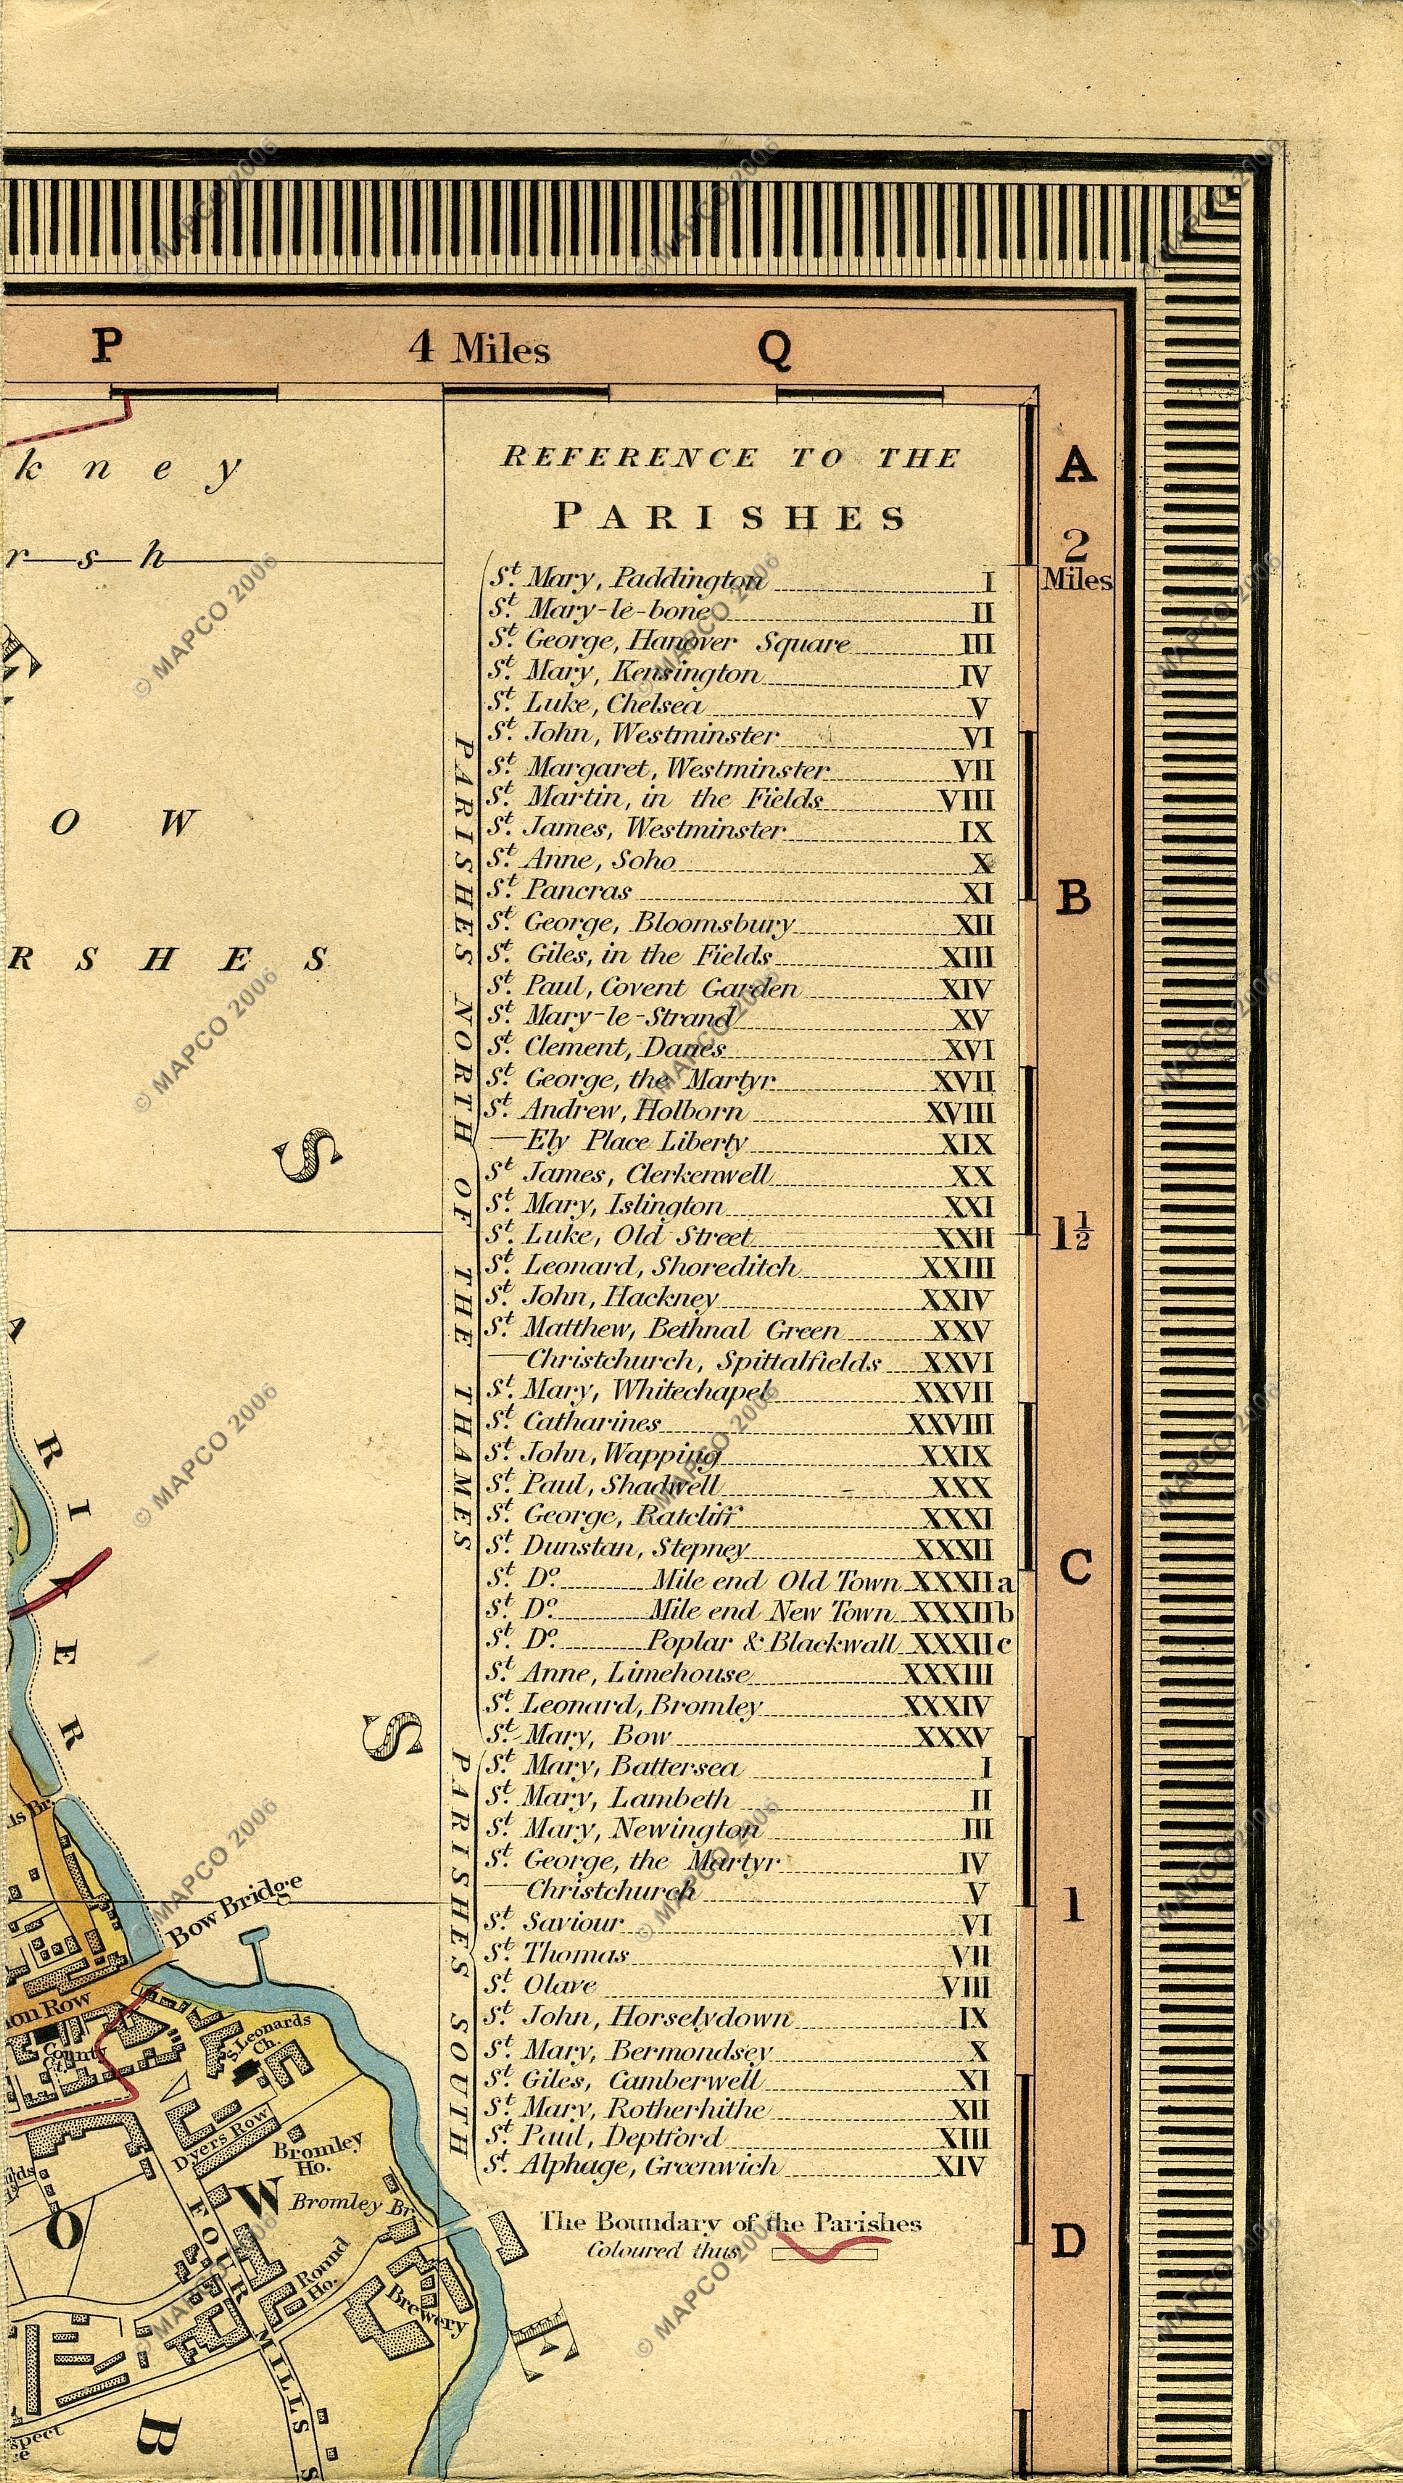 P 4 Miles Q
A
2
Miles
B
1½
C
1
D
REFERENCE TO THE
PARISHES
PARISHES NORTH OF THE THAMES
St. Mary, Paddington I
St. Mary-le-bone II
St. George, Hanover Square III
St. Mary, Kensington IV
St. Luke, Chelsea V
St. John, Westminster VI
St. Margaret, Westminster VII
St. Martin, in the Fields VIII
St. James, Westminster IX
St. Anne, Soho X
St. Pancras XI
St. George, Bloomsbury XII
St. Giles, in the Fields XIII
St. Paul, Covent Garden XIV
St. Mary-le-Strand XV
St. Clement, Danes XVI
St. George, the Martyr XVII
St. Andrew, Holborn XVIII
— Ely Place Liberty XIX
St. James, Clerkenwell XX
St. Mary, Islington XXI
St. Luke, Old Street XXII
St. Leonard, Shoreditch XXIII
St. John, Hackney XXIV
St. Matthew, Bethnal Green XXV
— Christchurch, Spittalfields XXVI
St. Mary, Whitechapel XXVII
St. Catharines XXVIII
St. John, Wapping XXIX
St. Paul, Shadwell XXX
St. George, Ratcliff XXXI
St. Dunstan, Stepney XXXII
St. Do. Mile end Old Town XXXIIa
St. Do. Mile end New Town XXXIIb
St. Do. Poplar & Blackwall XXXIIc
St. Anne, Limehouse XXXIII
St. Leonard, Bromley XXXIV
St. Mary, Bow XXXV
PARISHES SOUTH
St. Mary, Battersea I
St. Mary, Lambeth II
St. Mary, Newington III
St. George, the Martyr IV
— Christchurch V
St. Saviour VI
St. Thomas VII
St. Olave VIII
St. John, Horselydown IX
St. Mary, Bermondsey X
St. Giles, Camberwell XI
St. Mary, Rotherhithe XII
St. Paul, Deptford XIII
St. Alphage, Greenwich XIV
The Boundary of the Parishes
Coloured thus
kney
rsh
OW
RSHES
S
A
RIER
S
ls Br.
Bow Bridge
on Row
County
Ct.
St. Leonards
Ch.
Dyers Row
Bromley
Ho.
OW
Bromley Br.
FOUR MILLS S
Round
Ho.
Brewery
E
B
spect
© MAPCO 2006